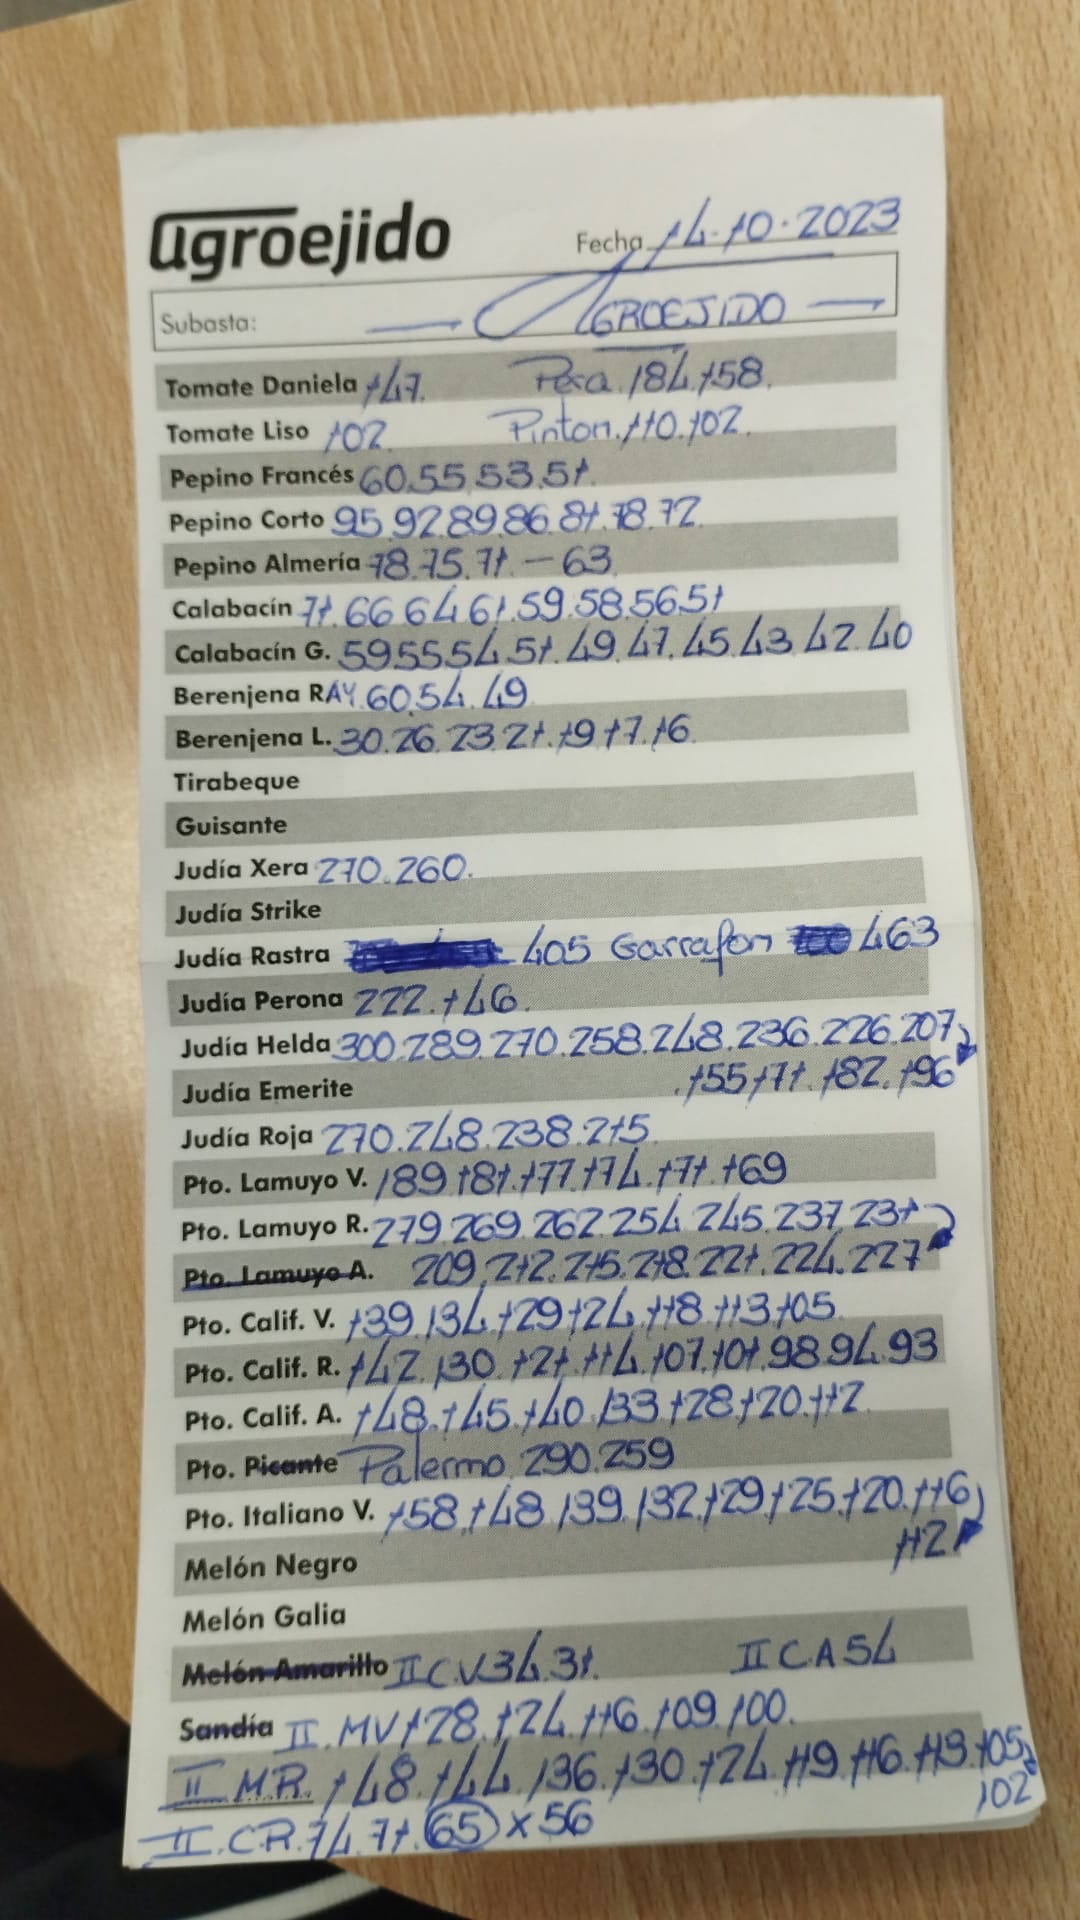 agroejido Fecha 14.10.2023
Subasta: — AGROEJIDO —
Tomate Daniela 147. Pera.184.158.
Tomate Liso 102 Pinton.110.102.
Pepino Francés 60.55.53.51.
Pepino Corto 95.92.89.86.81.78.72.
Pepino Almería 78.75.71.-63.
Calabacín 71.66.64.61.59.58.56.51
Calabacín G. 59.55.54.51.49.47.45.43.42.40
Berenjena RAY.60.54.49
Berenjena L. 30.26.23.21.19.17.16.
Tirabeque
Guisante
Judía Xera 270.260.
Judía Strike
Judía Rastra 405 Garrafon 463
Judía Perona 222.146.
Judía Helda 300.289.270.258.248.236.226.207
Judía Emerite .155.171.182.196
Judía Roja 270.248.238.215.
Pto. Lamuyo V. 189.181.177.174.171.169
Pto. Lamuyo R. 279.269.262.254.245.237.231
Pto. Lamuyo A. 209.212.215.218.221.224.227
Pto. Calif. V. 139.134.129.124.118.113.105.
Pto. Calif. R. 142.130.121.114.107.101.98.94.93
Pto. Calif. A. 148.145.140.133.128.120.112.
Pto. Picante Palermo.290.259
Pto. Italiano V. 158.148.139.132.129.125.120.116
112
Melón Negro
Melón Galia
Melón Amarillo II C.V.34.31. II C A 54
Sandía II.MV 128.124.116.109.100.
II M.R. 148.144.136.130.124.119.116.113.105
102
II.CR.74.71.65 x 56